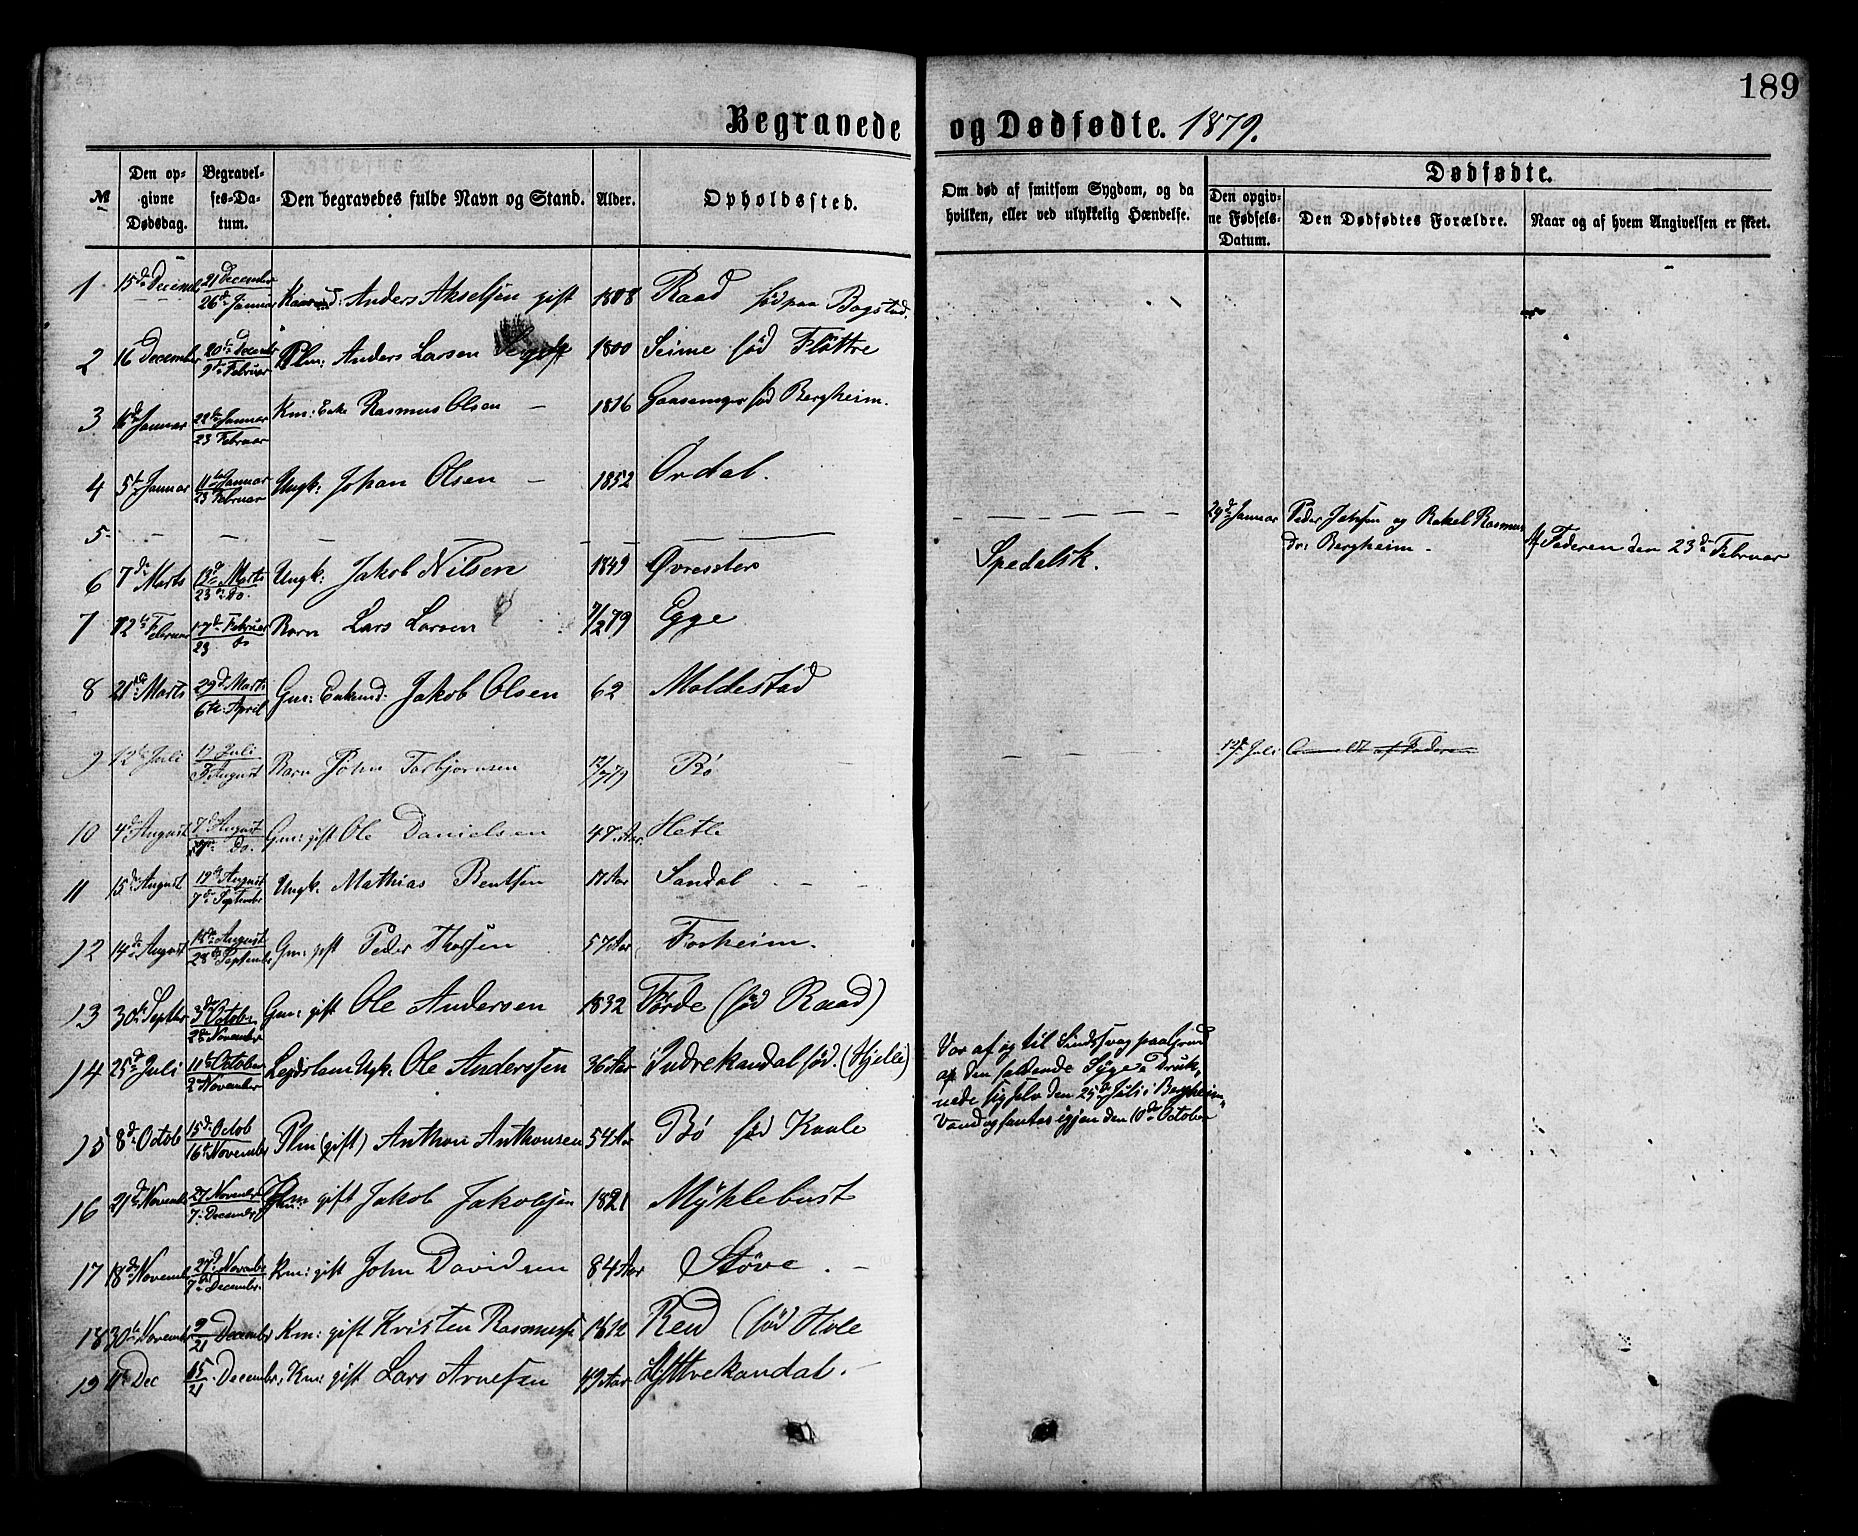 189
Begravede og Dødfødte. 1879.
№
Den opgivne Dødsdag.
Begravelses-Datum.
Den begravedes fulde Navn og Stand.
Alder.
Opholdssted.
Om død af smitsom Sygdom, og da hvilken, eller ved ulykkelig Hændelse.
Dødfødte.
Den opgivne Fødsels-Datum.
Den Dødfødtes Forældre.
Naar og af hvem Angivelsen er skeet.
1 15de Decemb 21 December / 26de Januar Anders Akselsen gift 1808 Raad født paa Bogstad.
2 16 December 20de Decembr / 9de Februar Plm: Anders Larsen 1800 Seime fød Flöttre
3 16de Januar 22de Januar / 23 Februar Km: Enke Rasmus Olsen — 1816 Gaasemyr fød Bergheim.
4 5te Januar 11te Januar / 23 Februar Ungk: Johan Olsen — 1852 Ordal.
5 — — — — — 29de Januar Peder Jakobsen og Rakel Rasmus
dr: Bergheim. Af Faderen den 23de Februar
6 7de Marts 12de Marts / 23de Do. Ungk: Jakob Nilsen 1849 Øvresden Spedalsk.
7 12te Februar 17de Februar / 23 Do Barn Lars Larsen 7/2 79 Egge
8 21de Marts 29de Marts / 6te April Gm: Enkmd: Jakob Olsen 62 Moldestad
9 12te Juli 19 Juli / August Barn John Torbjørnsen 12/7 79 Bö — 12te Juli
10 4de August 7de August / Do. Gm: gift Ole Danielsen 47 Aar Hetle
11 15de August 19de August / 7de September Ungk. Mathias Bentsen 17 Aar Sandal — —
12 14de August 18de August / 28de September Gm: gift Peder Thorsen 57 Aar Forheim.
13 30te Septbr 3de Octobr / 2de November Gm: gift Ole Andersen 1832 Førde (fød Raad)
14 25de Juli 11te October / 2de November Legdslem Ugk. Ole Anderssen 36 Aar Indrekandal fød. (Hjelle)
Var af og til Sindssvag paa Grund
af den faldende Syge. Druk-
nede sig selv den 25de Juli i Bergheim,
Vand og fantes igjen den 10de October
15 8de Octob 15de Octob / 16de November Plm (gift) Anthon Anthonsen 54 Aar Bö fød Kaale
16 21de Novemb 27 Novembr / 7de Decembr gift Jakob Jakobsen 1821 Myklebust
17 18de Novemb 27de Novembr / 7de Decembr. Km: gift John Davidsen 84 Aar Støve. —
18 30te Novembr 9/21 Decembr Km: gift Kristen Rasmuss 1812 Red (fød Hole
19 11te Dec 15/21 Decembr, Km: gift Lars Arnesen 49 Aar Yttrekandal. —